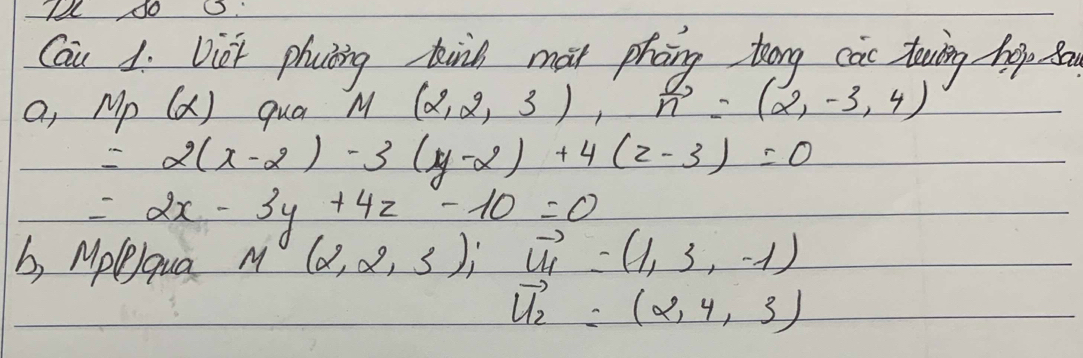 Đề số 3:
Câu 1: Viết phương trình mặt phẳng trong các trường hợp sau
a, Mp (α) qua M (2, 2, 3), n⃗ = (2, -3, 4)
= 2(x-2) - 3(y-2) + 4(z-3) = 0
= 2x - 3y + 4z - 10 = 0
b, Mp(P) qua M (2, 2, 3); u⃗1 = (1, 3, -1)
u⃗2 = (2, 4, 3)